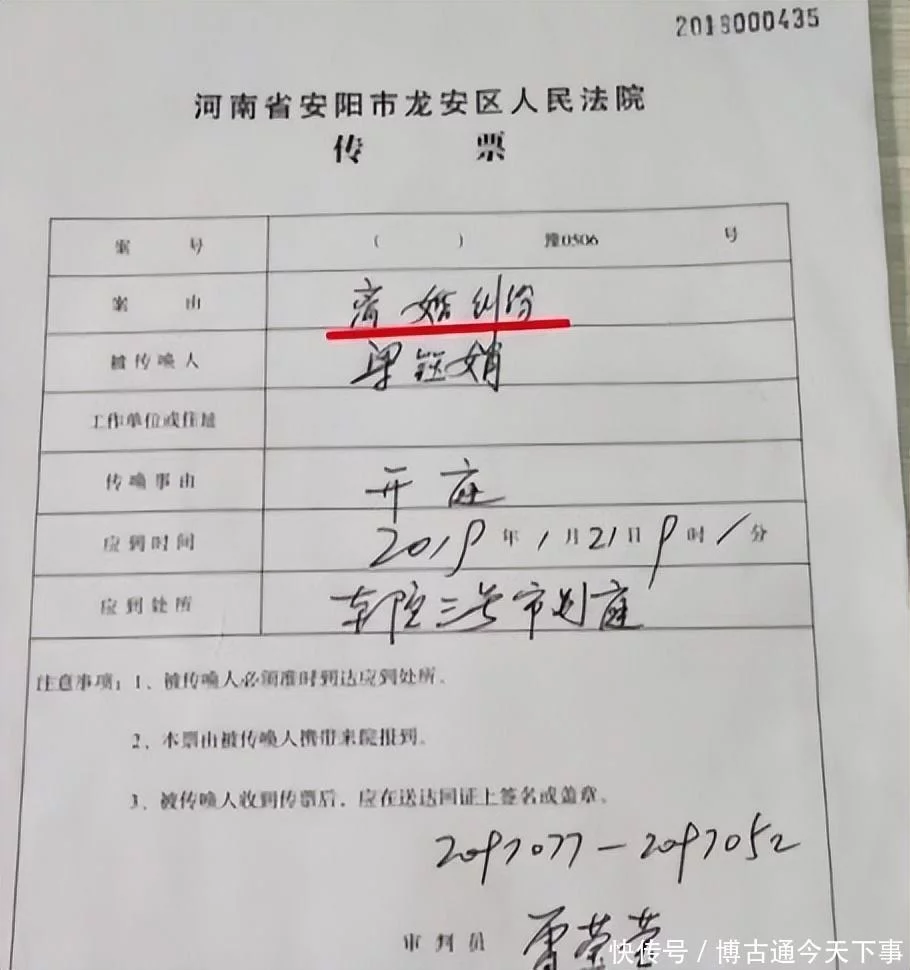 2018000435
河南省安阳市龙安区人民法院
传 票
案 号 ( ) 豫0506 号
案 由 离婚纠纷
被传唤人 梁钰娟
工作单位或住址
传唤事由 开庭
应到时间 2019年1月21日9时1分
应到处所 本院三号审判庭
注意事项：1、被传唤人必须准时到达应到处所。
2、本票由被传唤人携带来院报到。
3、被传唤人收到传票后，应在送达回证上签名或盖章。
2097077-2097052
审 判 员
快传号 / 博古通今天下事